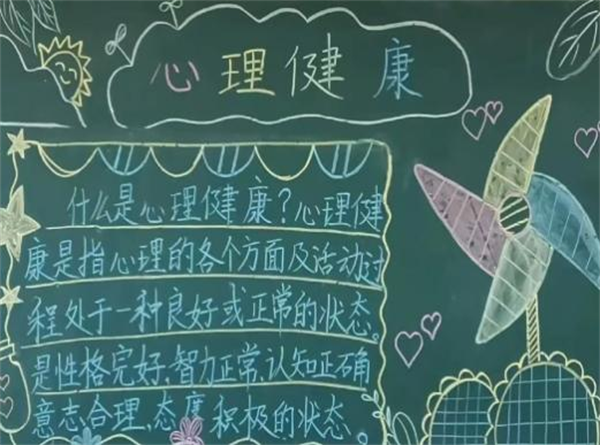 心理健康
什么是心理健康?心理健
康是指心理的各个方面及活动过
程处于一种良好或正常的状态。
是性格完好、智力正常、认知正确
意志合理、态度积极的状态、